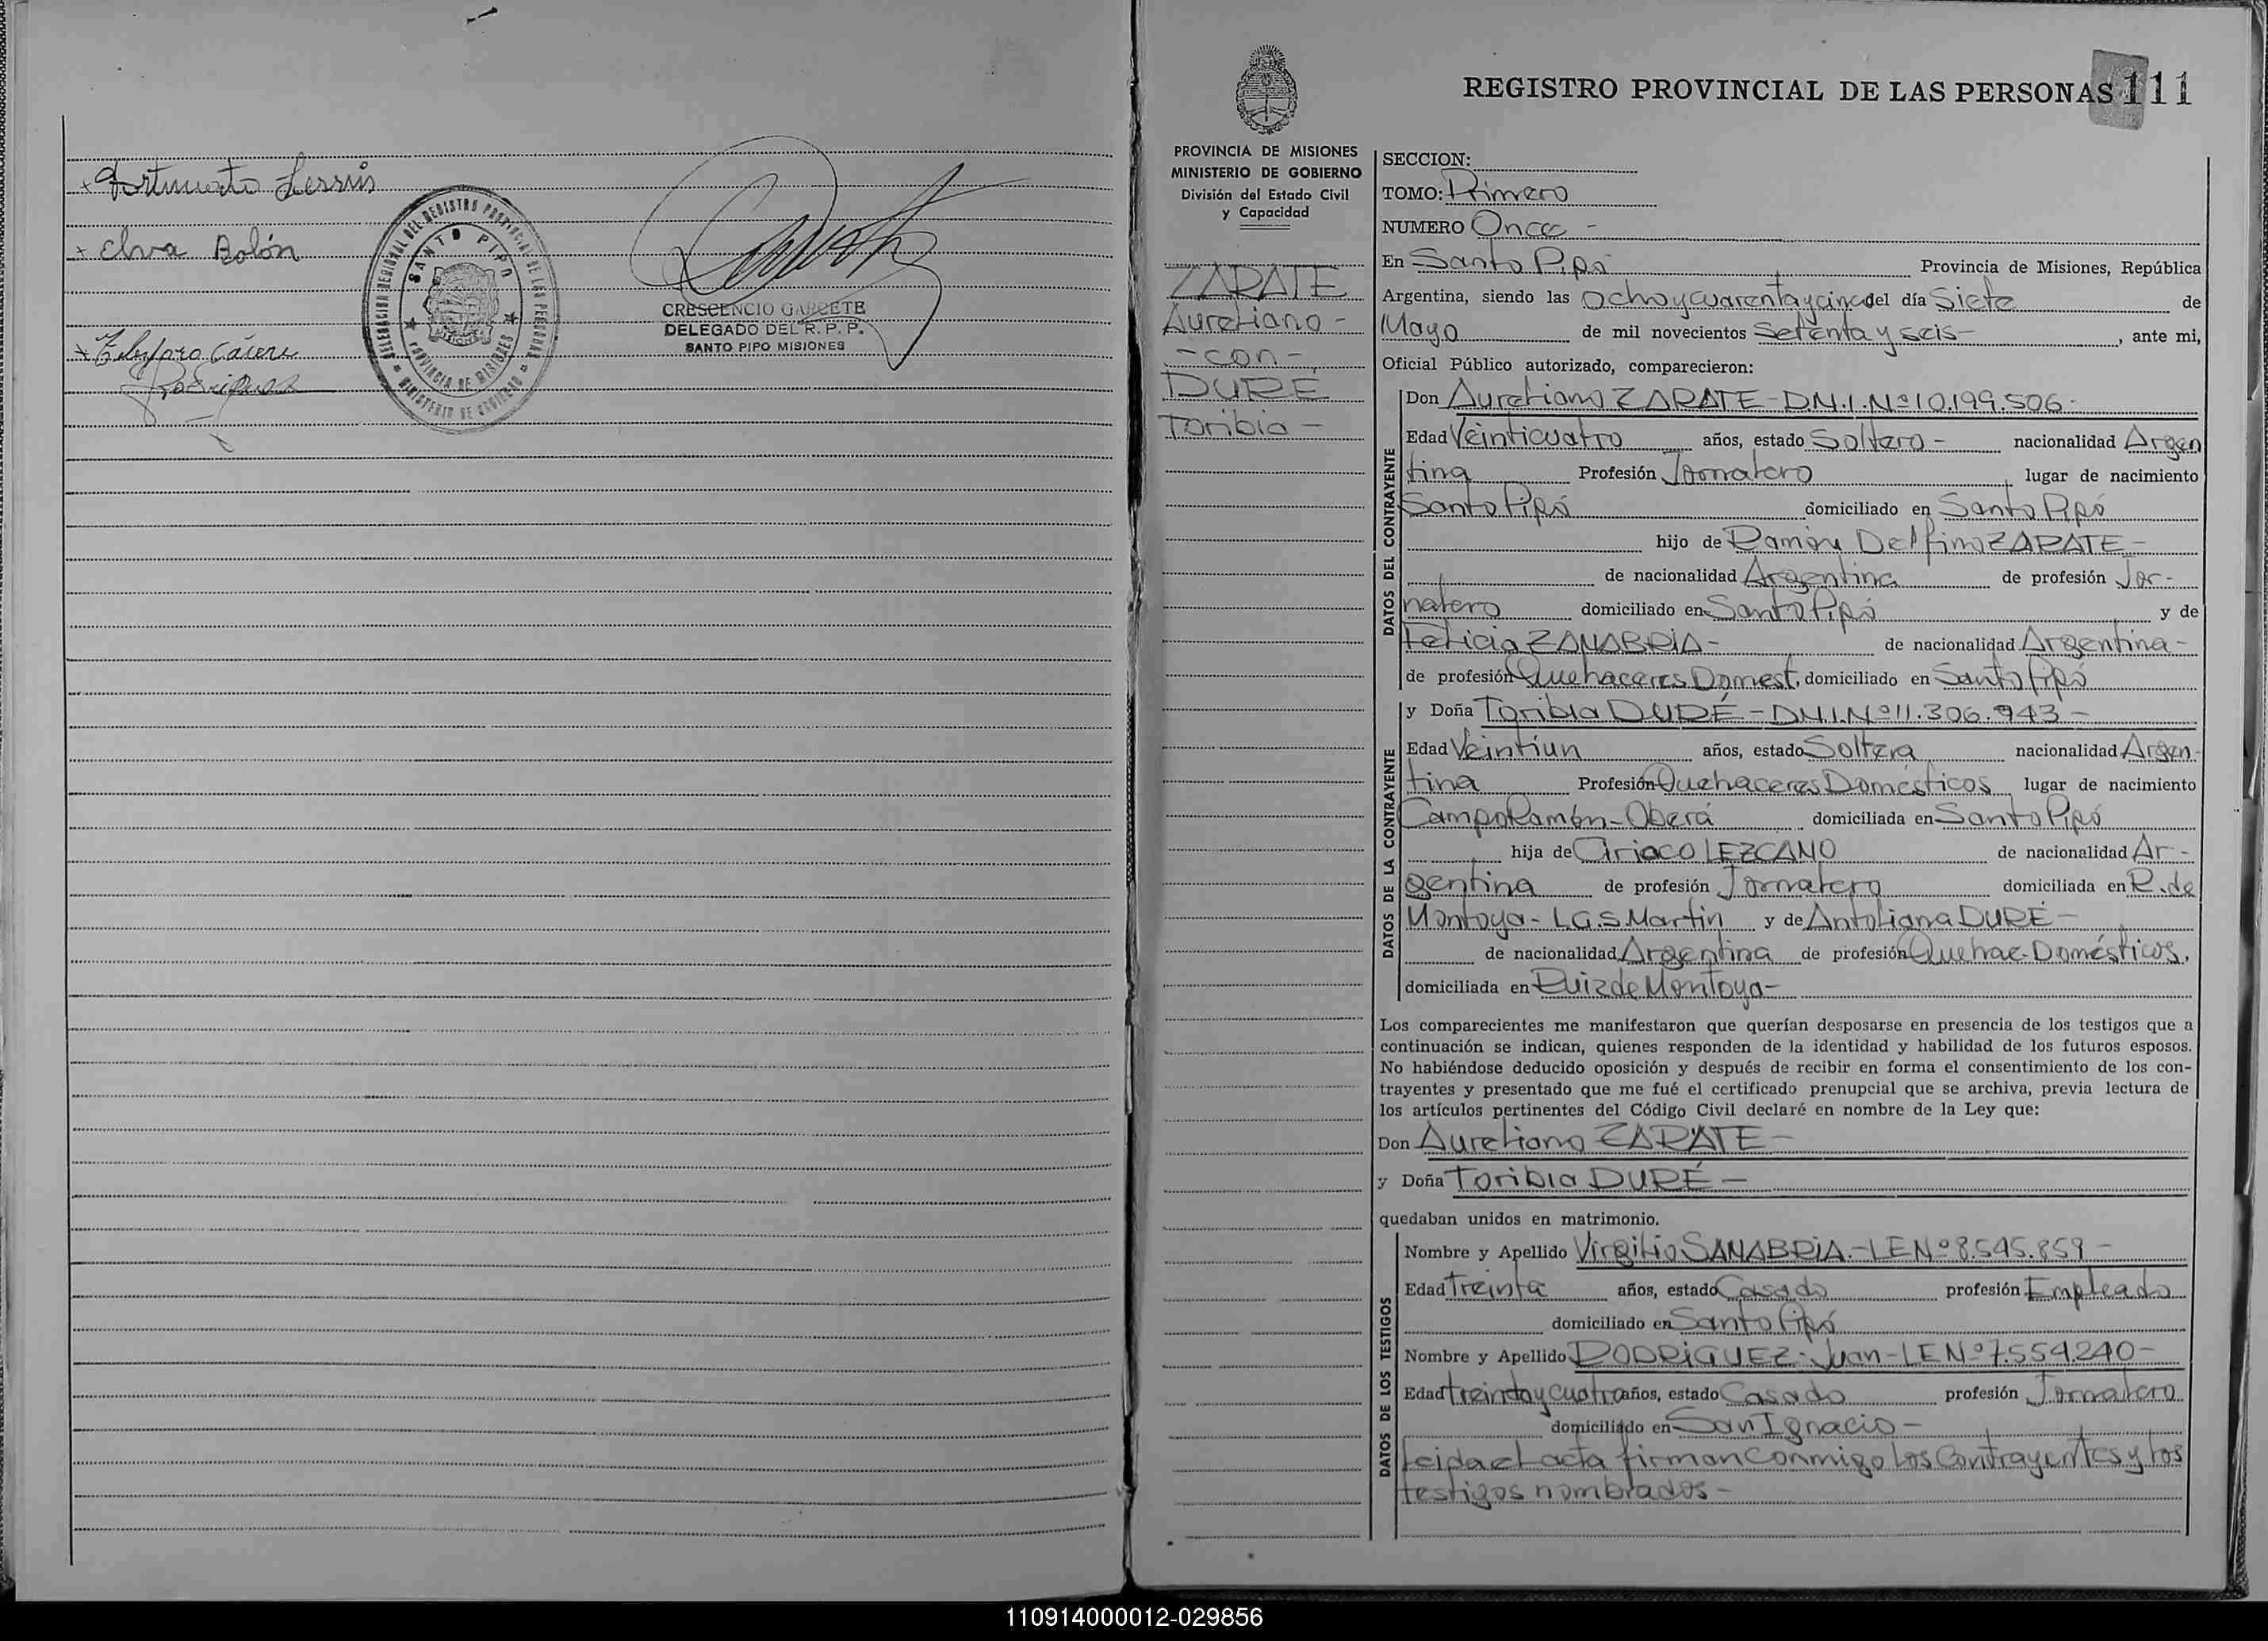 Elva Bolón
DELEGACION REGIONAL DEL REGISTRO PROVINCIAL DE LAS PERSONAS
SANTO PIPO
PROVINCIA DE MISIONES
MINISTERIO DE GOBIERNO
CRESCENCIO GARCETE
DELEGADO DEL R. P. P.
SANTO PIPO MISIONES
Rodriguez
REGISTRO PROVINCIAL DE LAS PERSONAS 111
PROVINCIA DE MISIONES
MINISTERIO DE GOBIERNO
División del Estado Civil
y Capacidad
ZARATE
Aureliano -
- con -
DURÉ
Toribia -
SECCION:
TOMO: Primero
NUMERO Once -
En Santo Pipó Provincia de Misiones, República
Argentina, siendo las Ocho y cuarenta y cinco del día Siete de
Mayo de mil novecientos Setenta y seis - , ante mi,
Oficial Público autorizado, comparecieron:
DATOS DEL CONTRAYENTE
Don Aureliano ZARATE - D.N.I. Nº 10.199.506 -
Edad Veinticuatro años, estado Soltero - nacionalidad Argen
tina Profesión Jornalero , lugar de nacimiento
Santo Pipó domiciliado en Santo Pipó
hijo de Ramón Delfino ZARATE -
de nacionalidad Argentina de profesión Jor-
nalero domiciliado en Santo Pipó y de
Felicia ZANABRIA - de nacionalidad Argentina -
de profesión Quehaceres Domest. domiciliado en Santo Pipó
DATOS DE LA CONTRAYENTE
y Doña Toribia DURÉ - D.N.I. Nº 11.306.943 -
Edad Veintiun años, estado Soltera nacionalidad Argen-
tina Profesión Quehaceres Domésticos lugar de nacimiento
Campo Ramón - Oberá domiciliada en Santo Pipó
hija de Ciriaco LEZCANO de nacionalidad Ar-
gentina de profesión Jornalero domiciliada en R. de
Montoya - L.G.S. Martin y de Antoliana DURÉ -
de nacionalidad Argentina de profesión Quehac. Domésticos.
domiciliada en Ruiz de Montoya -
Los comparecientes me manifestaron que querían desposarse en presencia de los testigos que a
continuación se indican, quienes responden de la identidad y habilidad de los futuros esposos.
No habiéndose deducido oposición y después de recibir en forma el consentimiento de los con-
trayentes y presentado que me fué el certificado prenupcial que se archiva, previa lectura de
los artículos pertinentes del Código Civil declaré en nombre de la Ley que:
Don Aureliano ZARATE -
y Doña Toribia DURÉ -
quedaban unidos en matrimonio.
DATOS DE LOS TESTIGOS
Nombre y Apellido Virgilio SANABRIA. - LE Nº 8.545.859 -
Edad Treinta años, estado Casado profesión Empleado
domiciliado en Santo Pipó
Nombre y Apellido RODRIGUEZ - Juan - LE Nº 7.554.240 -
Edad treinta y cuatro años, estado Casado profesión Jornalero
domiciliado en San Ignacio -
Leida el acta firman conmigo los Contrayentes y los
testigos nombrados -
110914000012-029856